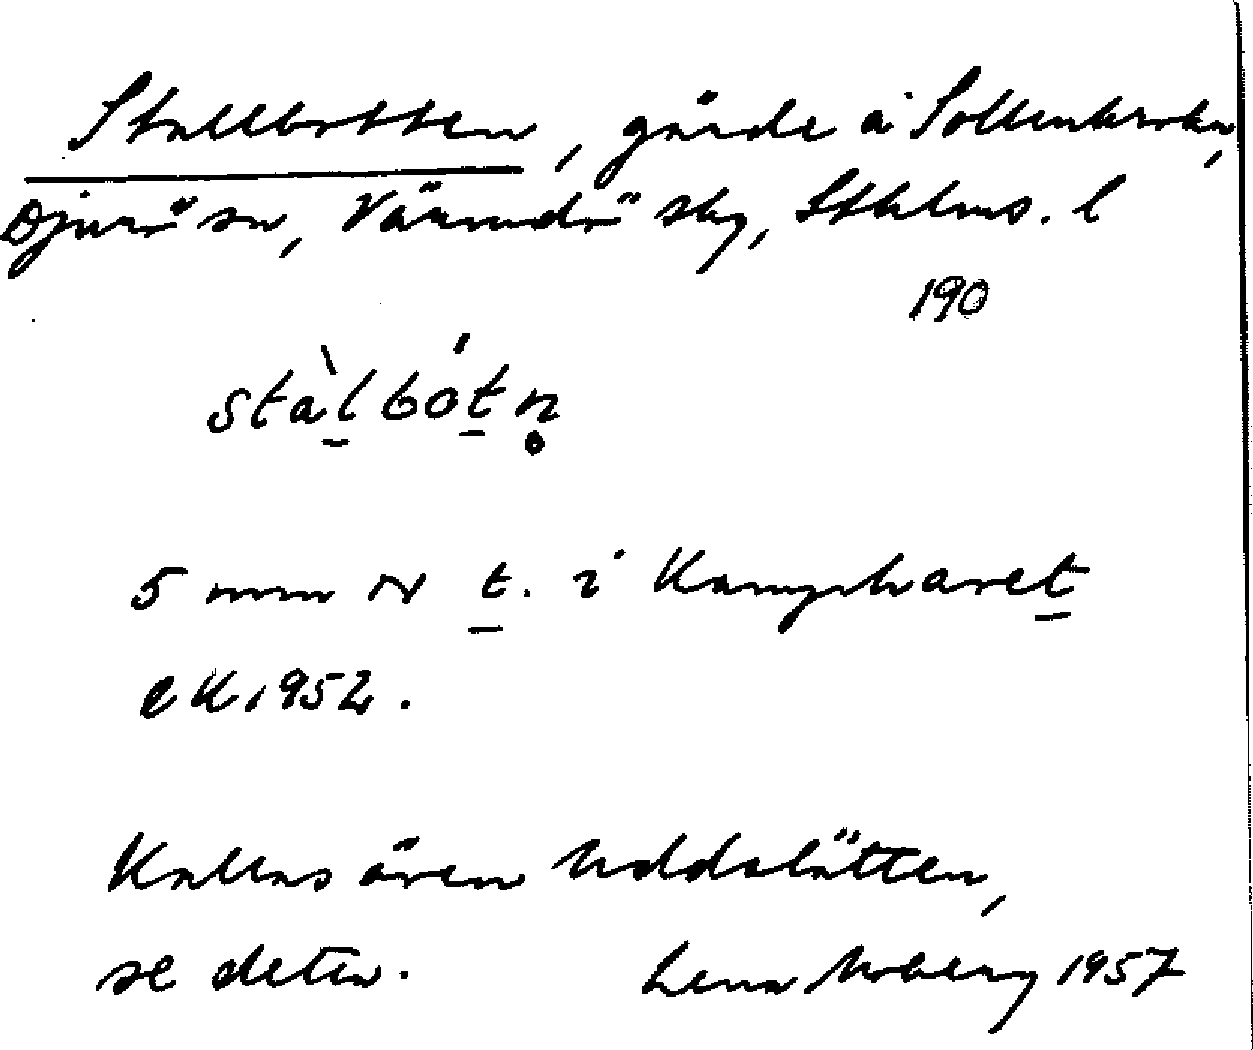 Stallbotten, gärde å Sollenkroka,
Djurö sn, Värmdö skg, Sthlms. l
190
stàlbótn̥
5 mm N t. i Kamphavet
eK 1952.
Kallas även Uddslätten,
se detta.
Lena Moberg 1957